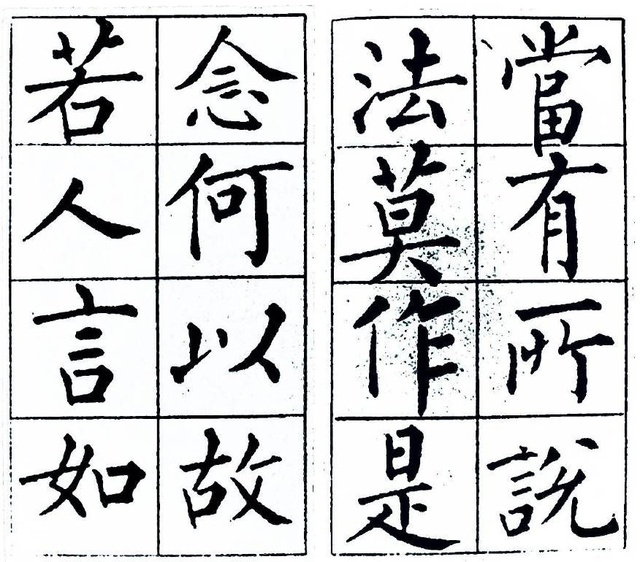 當有所說
法莫作是
念何以故
若人言如